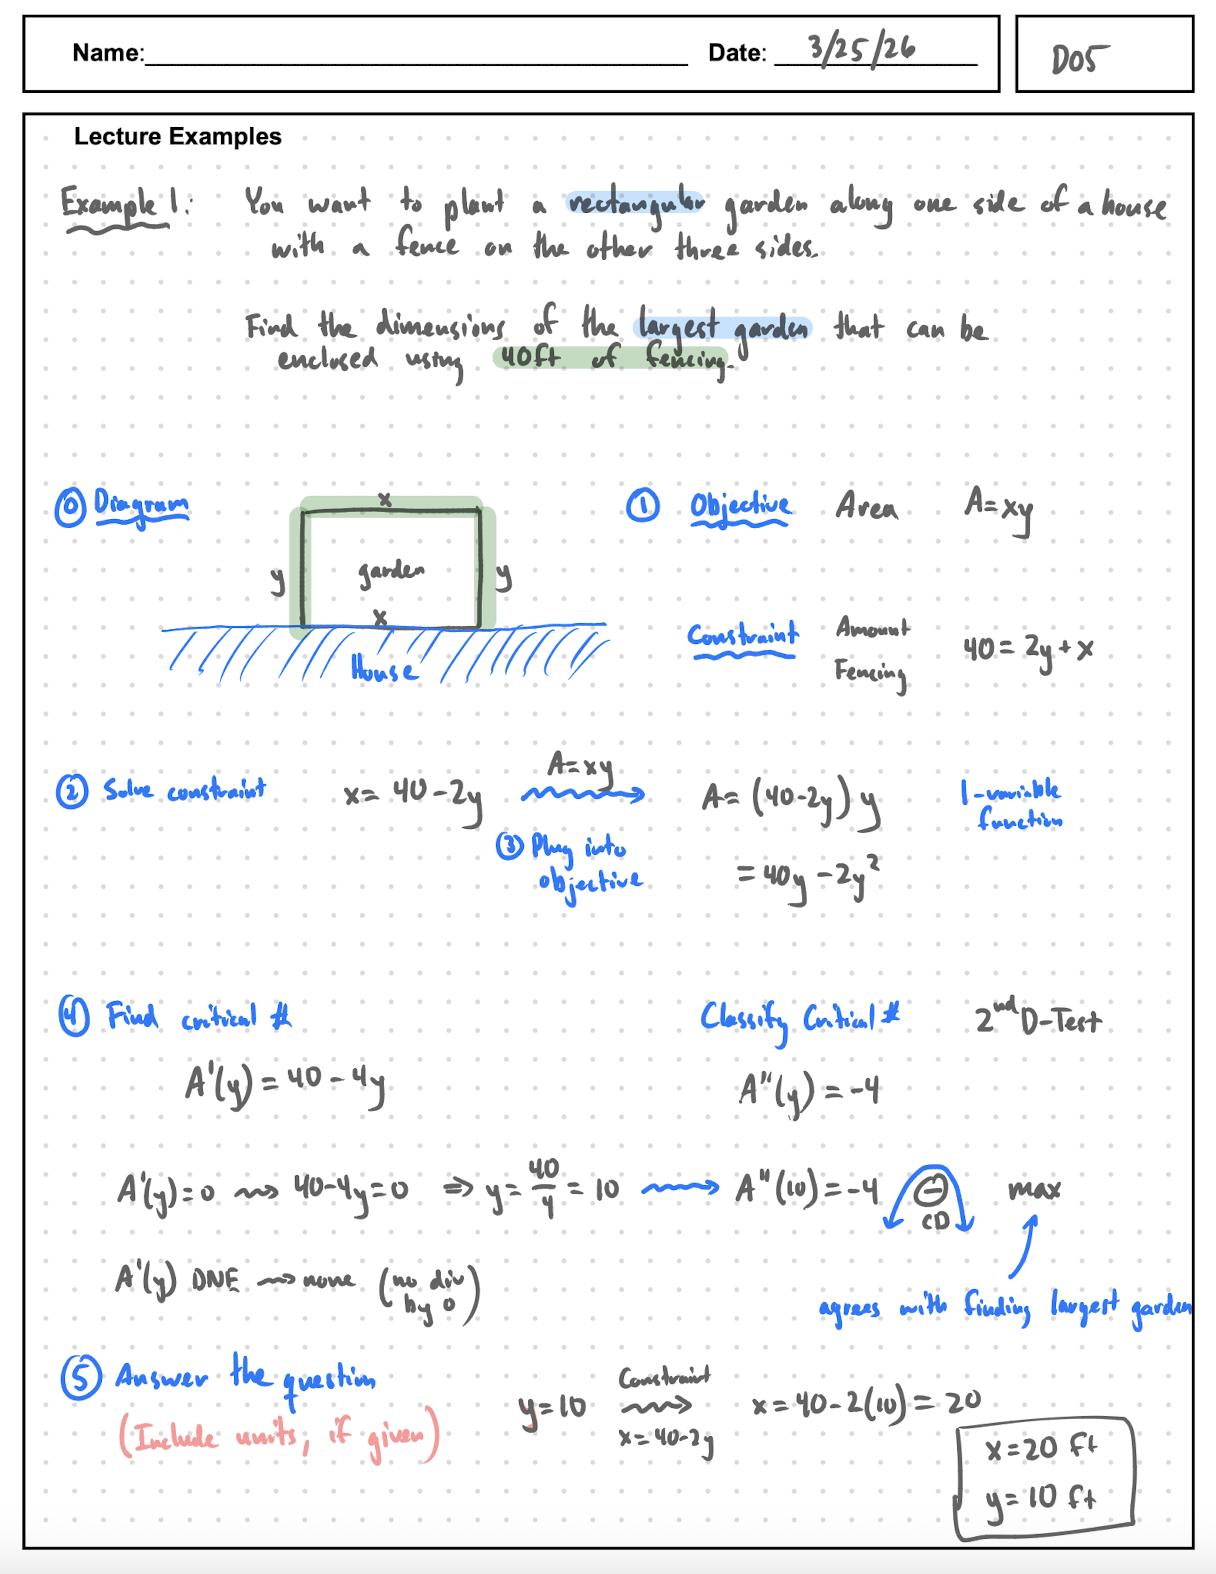 Name: Date: 3/25/26 D05
Lecture Examples
Example 1: You want to plant a rectangular garden along one side of a house
with a fence on the other three sides.
Find the dimensions of the largest garden that can be
enclosed using 40ft of fencing.
⓪ Diagram
x
y garden y
x
House
① Objective Area A=xy
Constraint Amount Fencing 40 = 2y + x
② Solve constraint x = 40-2y
A=xy
③ Plug into
objective
A = (40-2y) y
= 40y - 2y²
1-variable
function
④ Find critical #
A'(y) = 40 - 4y
Classify Critical # 2nd D-Test
A''(y) = -4
A'(y) = 0 ⇝ 40-4y=0 ⇒ y = 40/4 = 10 ⟶ A''(10) = -4 ⊖ CD max
A'(y) DNE ⇝ none (no div by 0)
agrees with finding largest garden
⑤ Answer the question
(Include units, if given)
y=10 Constraint ⇝ x = 40-2y x = 40-2(10) = 20
x = 20 ft
y = 10 ft